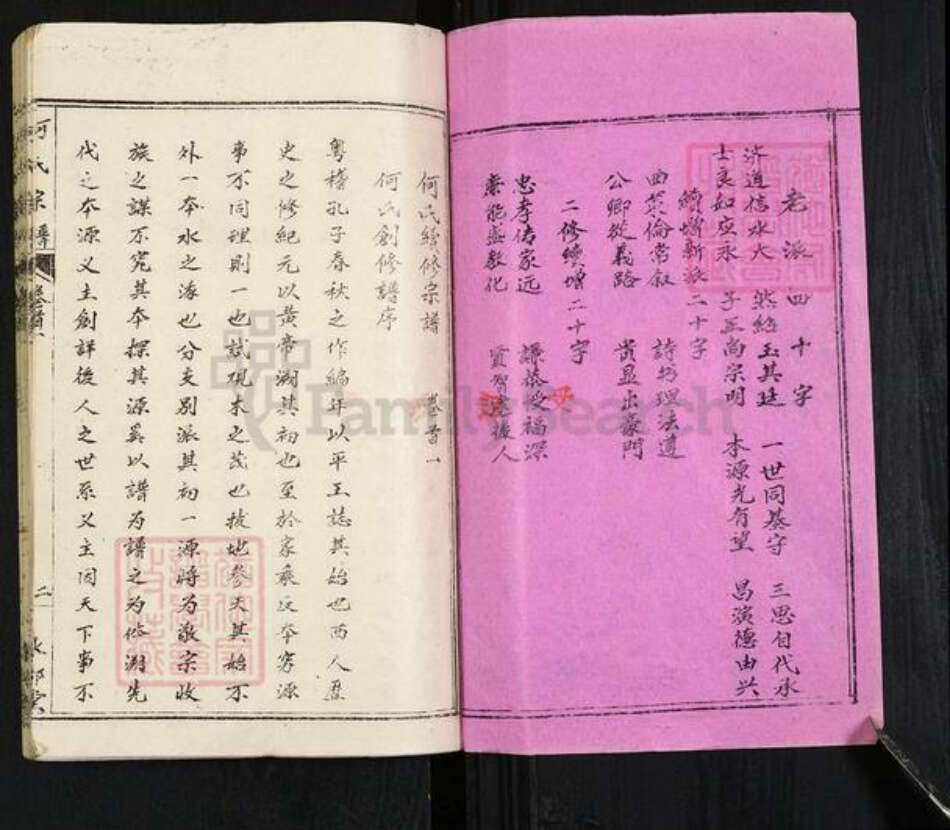 老派四十字
济道信水大 然绍玉其廷 一世同基守 三思自代永
士良如应永 子正尚宗明 本源光有望 昌演德由兴
续增新派二十字
西策伦常叙 詩书理法遵
公卿從義路 貴显出豪門
二修续增二十字
忠孝传家远 謙恭受福深
素能盛教化 賢智啓後人
何氏續修宗譜 卷首一
何氏創修譜序
粤稽孔子春秋之作編年以平王誌其始也西人歷
史之修紀元以黄帝溯其初也至於家乘反本穷源
事不同理則一也試观木之茂也拔地參天其始不
外一本水之海也分支别派其初一源将为敬宗收
族之謀不究其本探其源奚以譜为譜之为修溯先
代之本源义主創詳後人之世系义主因天下事不
何氏宗譜
卷首
二
FamilySearch